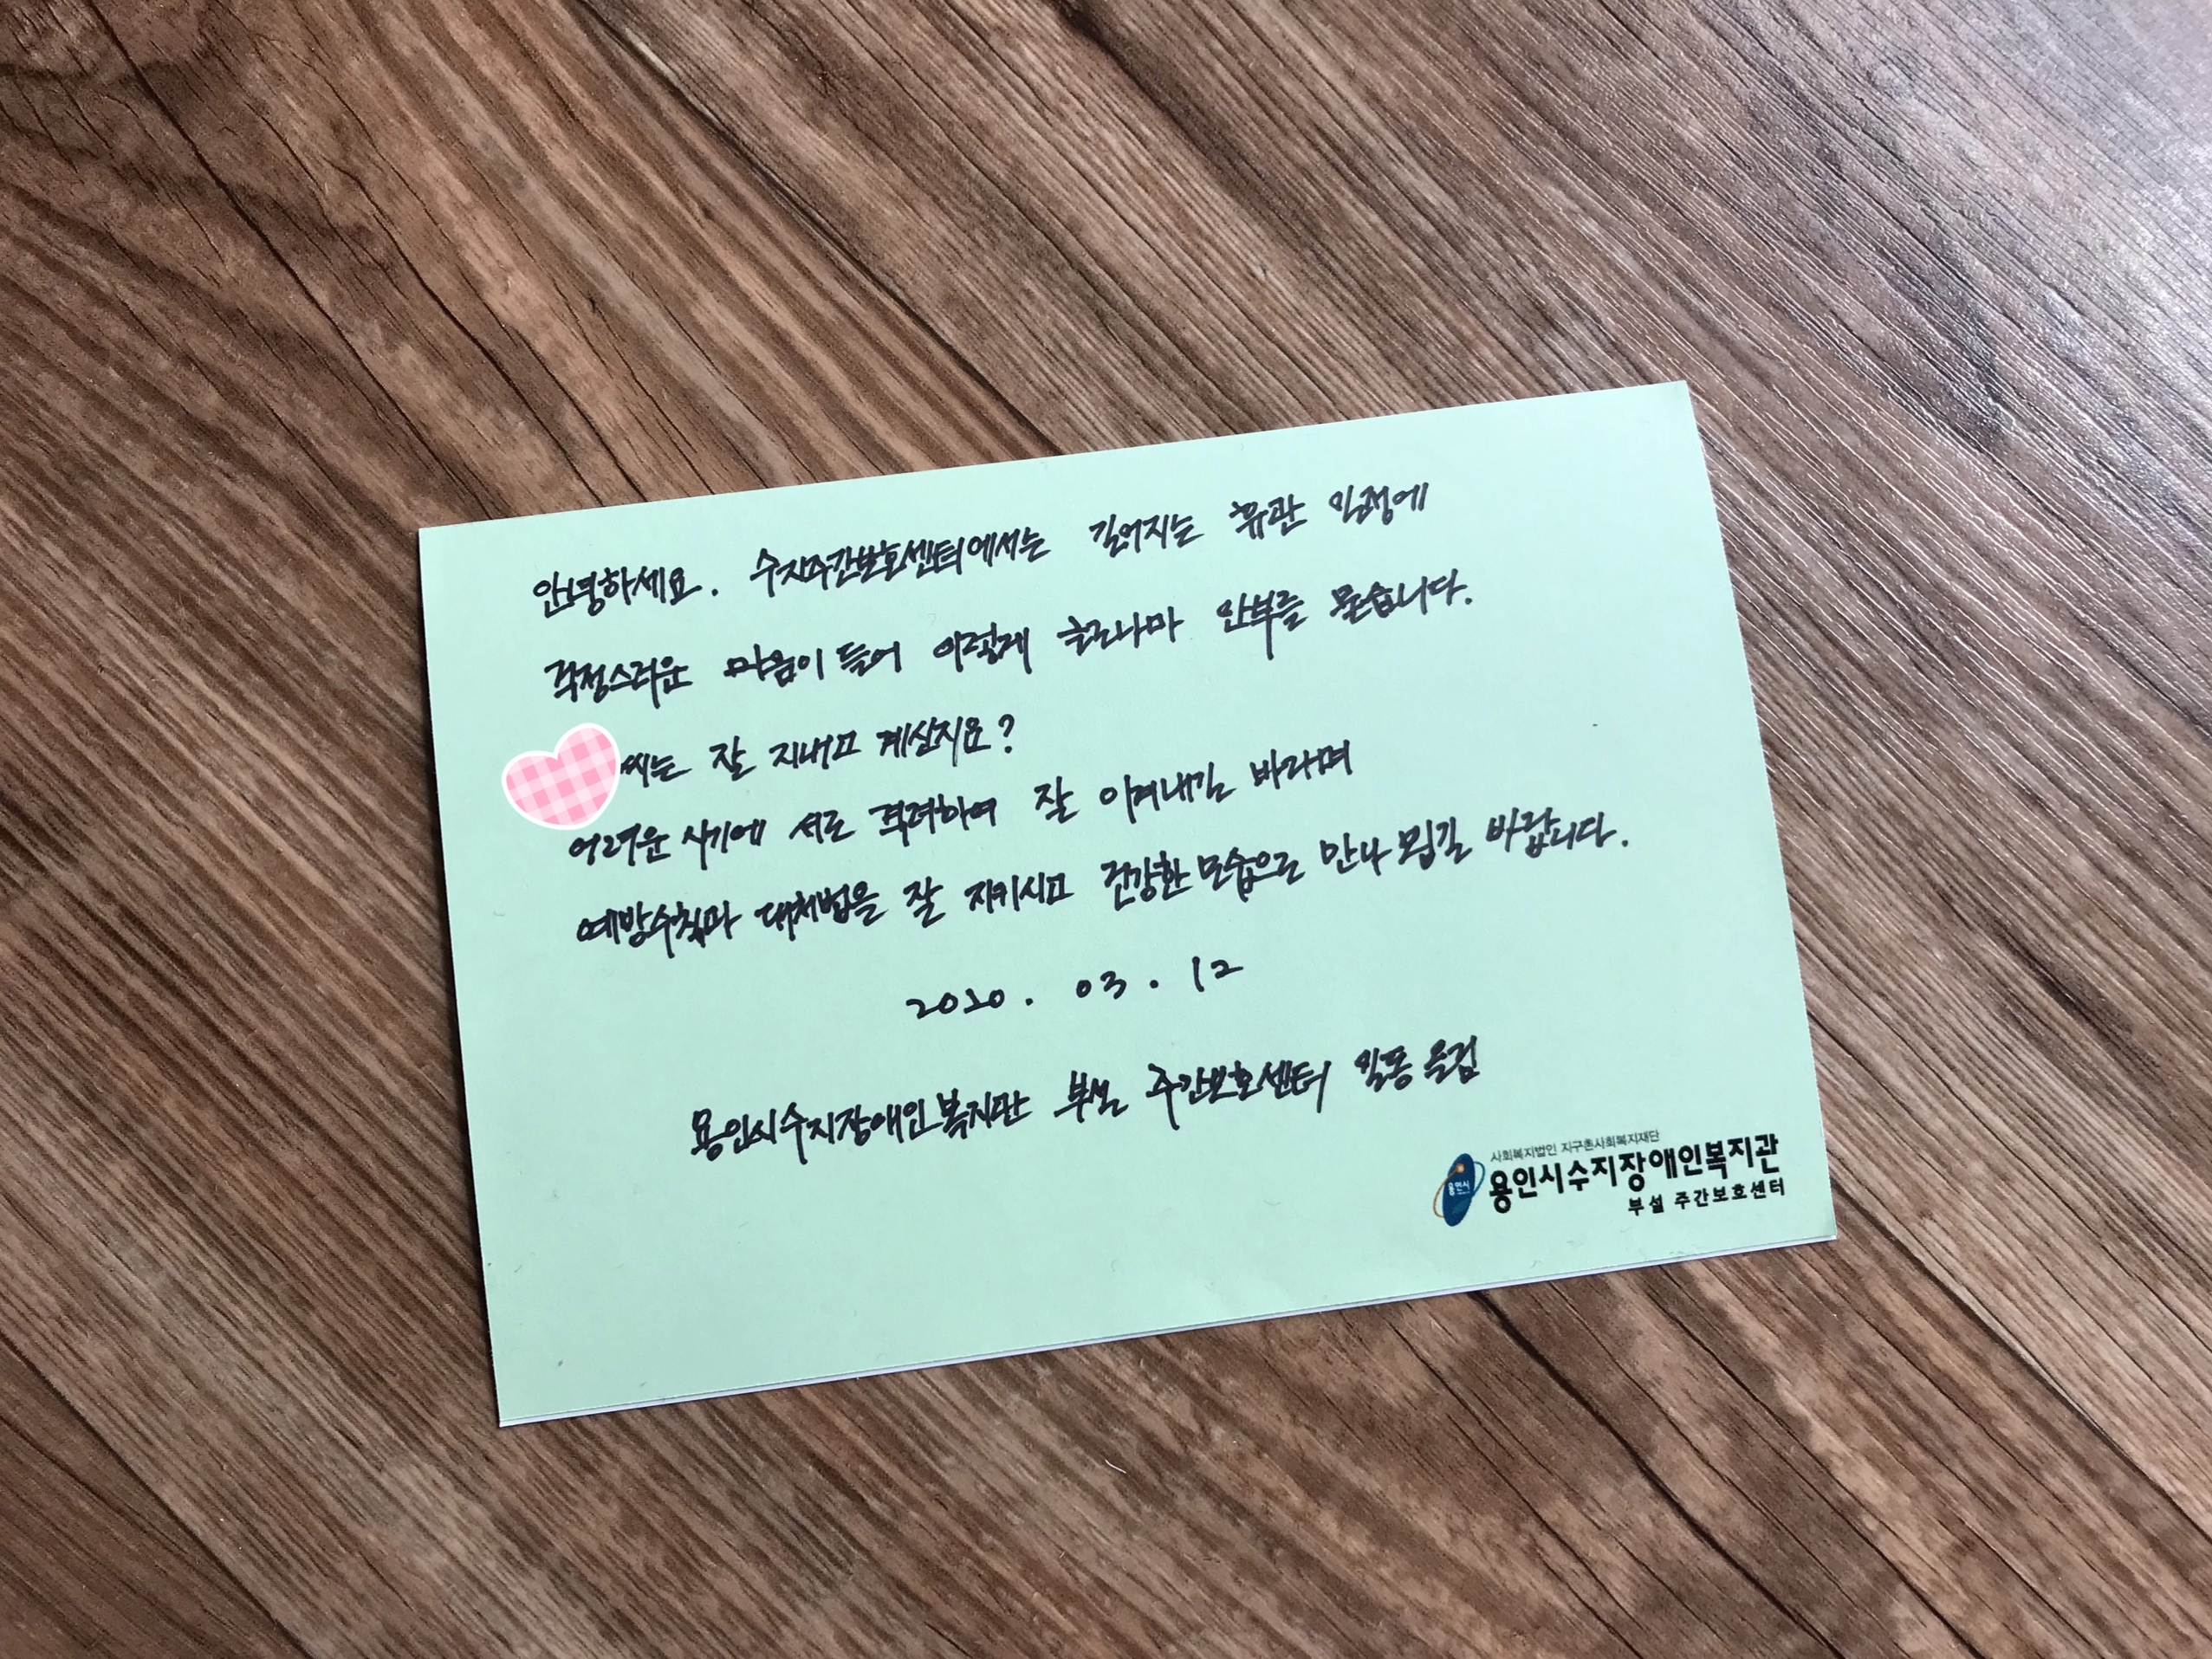 안녕하세요. 수지주간보호센터에서는 길어지는 휴관 일정에
걱정스러운 마음이 들어 이렇게 글로나마 안부를 묻습니다.
씨는 잘 지내고 계신지요?
어려운 시기에 서로 격려하여 잘 이겨내길 바라며
예방수칙과 대처법을 잘 지키시고 건강한 모습으로 만나 뵙길 바랍니다.
2020. 03. 12
용인시수지장애인복지관 부설 주간보호센터 일동 올림
사회복지법인 지구촌사회복지재단
용인시
용인시수지장애인복지관
부설 주간보호센터